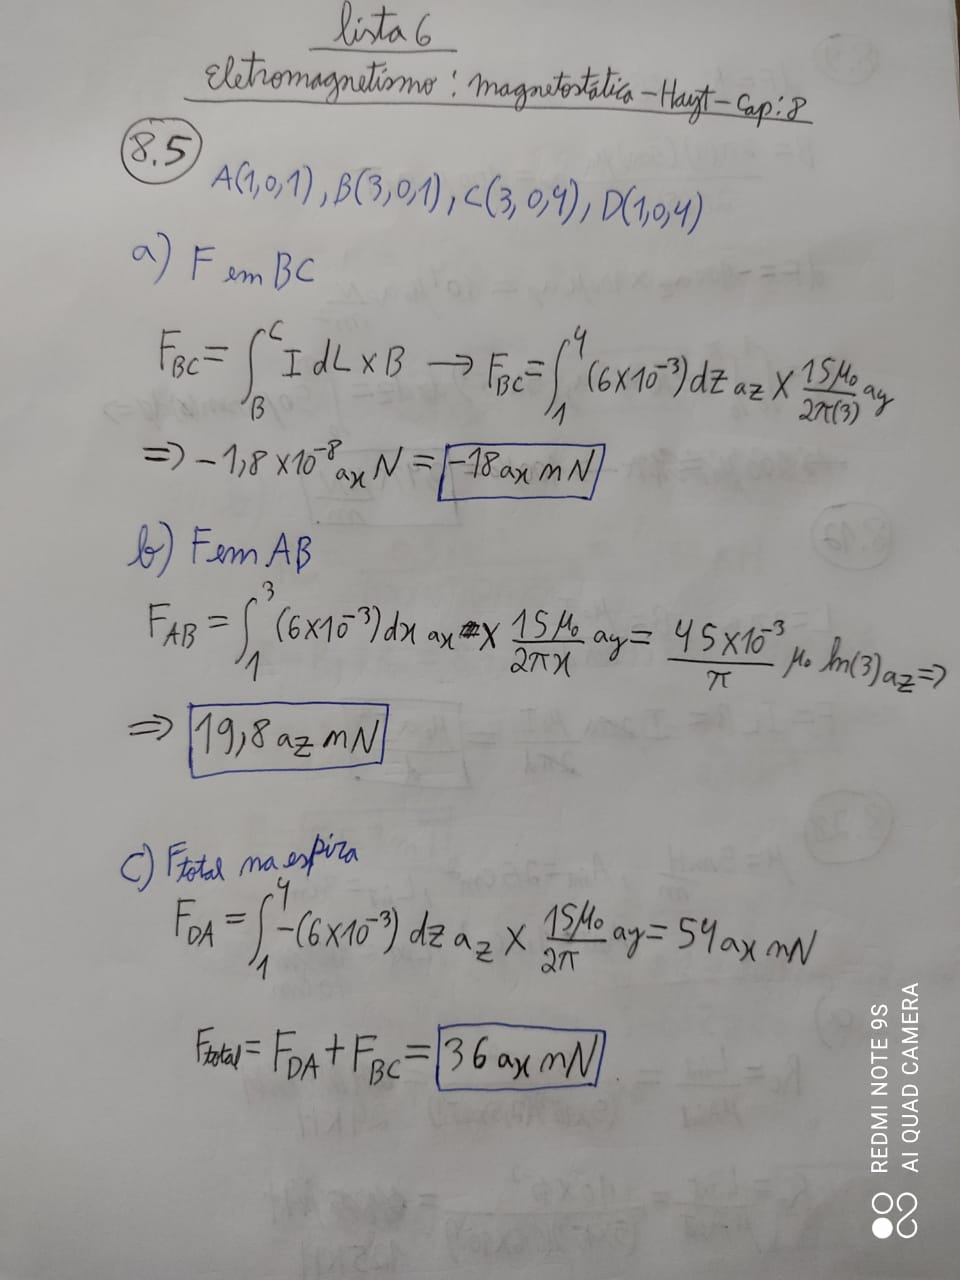 lista 6
Eletromagnetismo: magnetostática - Hayt - Cap: 8
8.5
A(1,0,1), B(3,0,1), C(3,0,4), D(1,0,4)
a) F em BC
F_BC = ∫_B^C I dL × B → F_BC = ∫_1^4 (6×10⁻³) dz az × 15μ₀/2π(3) ay
=> -1,8 × 10⁻⁸ ax N = -18 ax mN
b) F em AB
F_AB = ∫_1^3 (6×10⁻³) dx ax × 15μ₀/2πx ay = 45×10⁻³/π μ₀ ln(3) az =>
=> 19,8 az mN
c) Ftotal na espira
F_DA = ∫_1^4 -(6×10⁻³) dz az × 15μ₀/2π ay = 54 ax mN
Ftotal = F_DA + F_BC = 36 ax mN
REDMI NOTE 9S
AI QUAD CAMERA